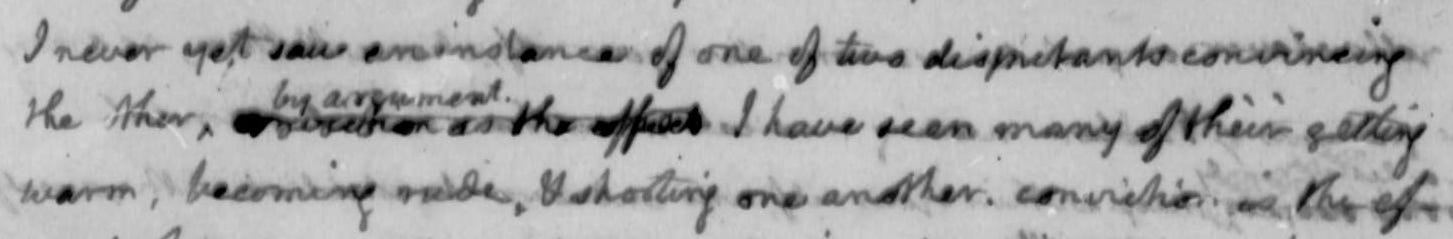 I never yet saw an instance of one of two disputants convincing
by argument.
the other, conviction is the effect I have seen many of their getting
warm, becoming rude, & shooting one another. conviction is the ef-